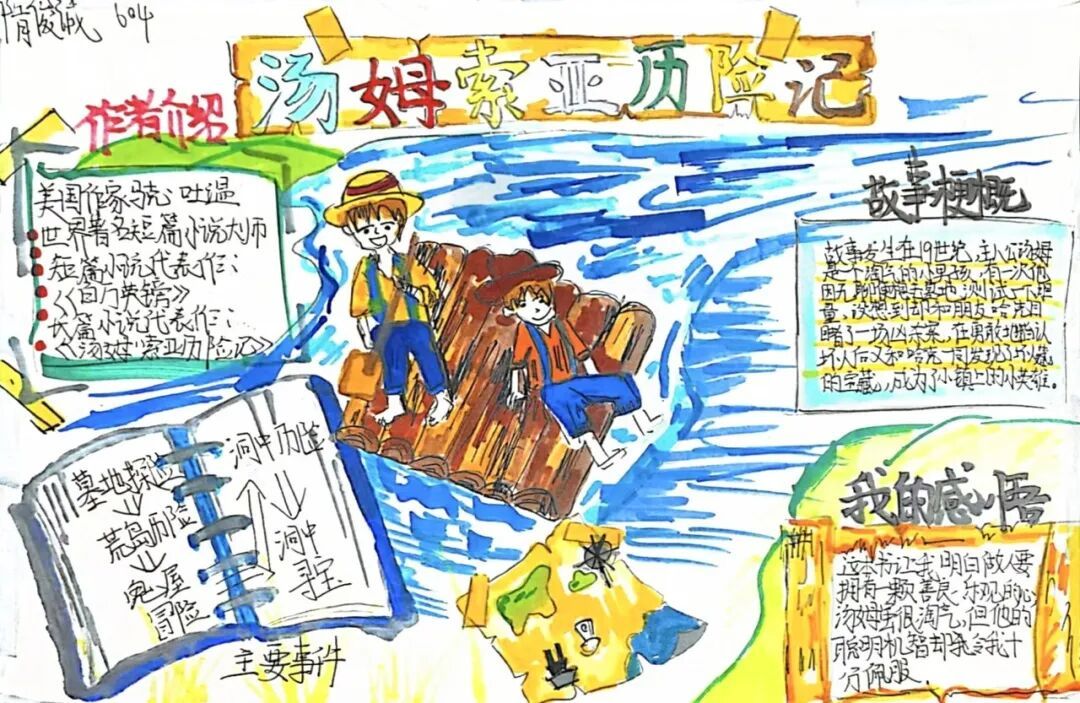 604
汤姆索亚历险记
作者介绍
美国作家 吐温
世界著名短篇小说大师
短篇小说代表作:
《百万英镑》
长篇小说代表作:
《汤姆索亚历险记》
故事梗概
故事发生在19世纪,主人公汤姆
是个淘气的小男孩,有一次他
因无聊 墓地测试一下胆
量,没想到却和朋友哈克目
睹了一场凶杀案,在勇敢地指认
坏人后又和哈克一同发现了坏人藏
的宝藏,成为了小镇上的小英雄。
墓地探险
荒岛历险
鬼屋
冒险
洞中历险
洞中
寻宝
主要事件
我的感悟
这本书让我明白做人要
拥有一颗善良、乐观的心
汤姆虽很淘气,但他的
聪明机智却令我十
分佩服.